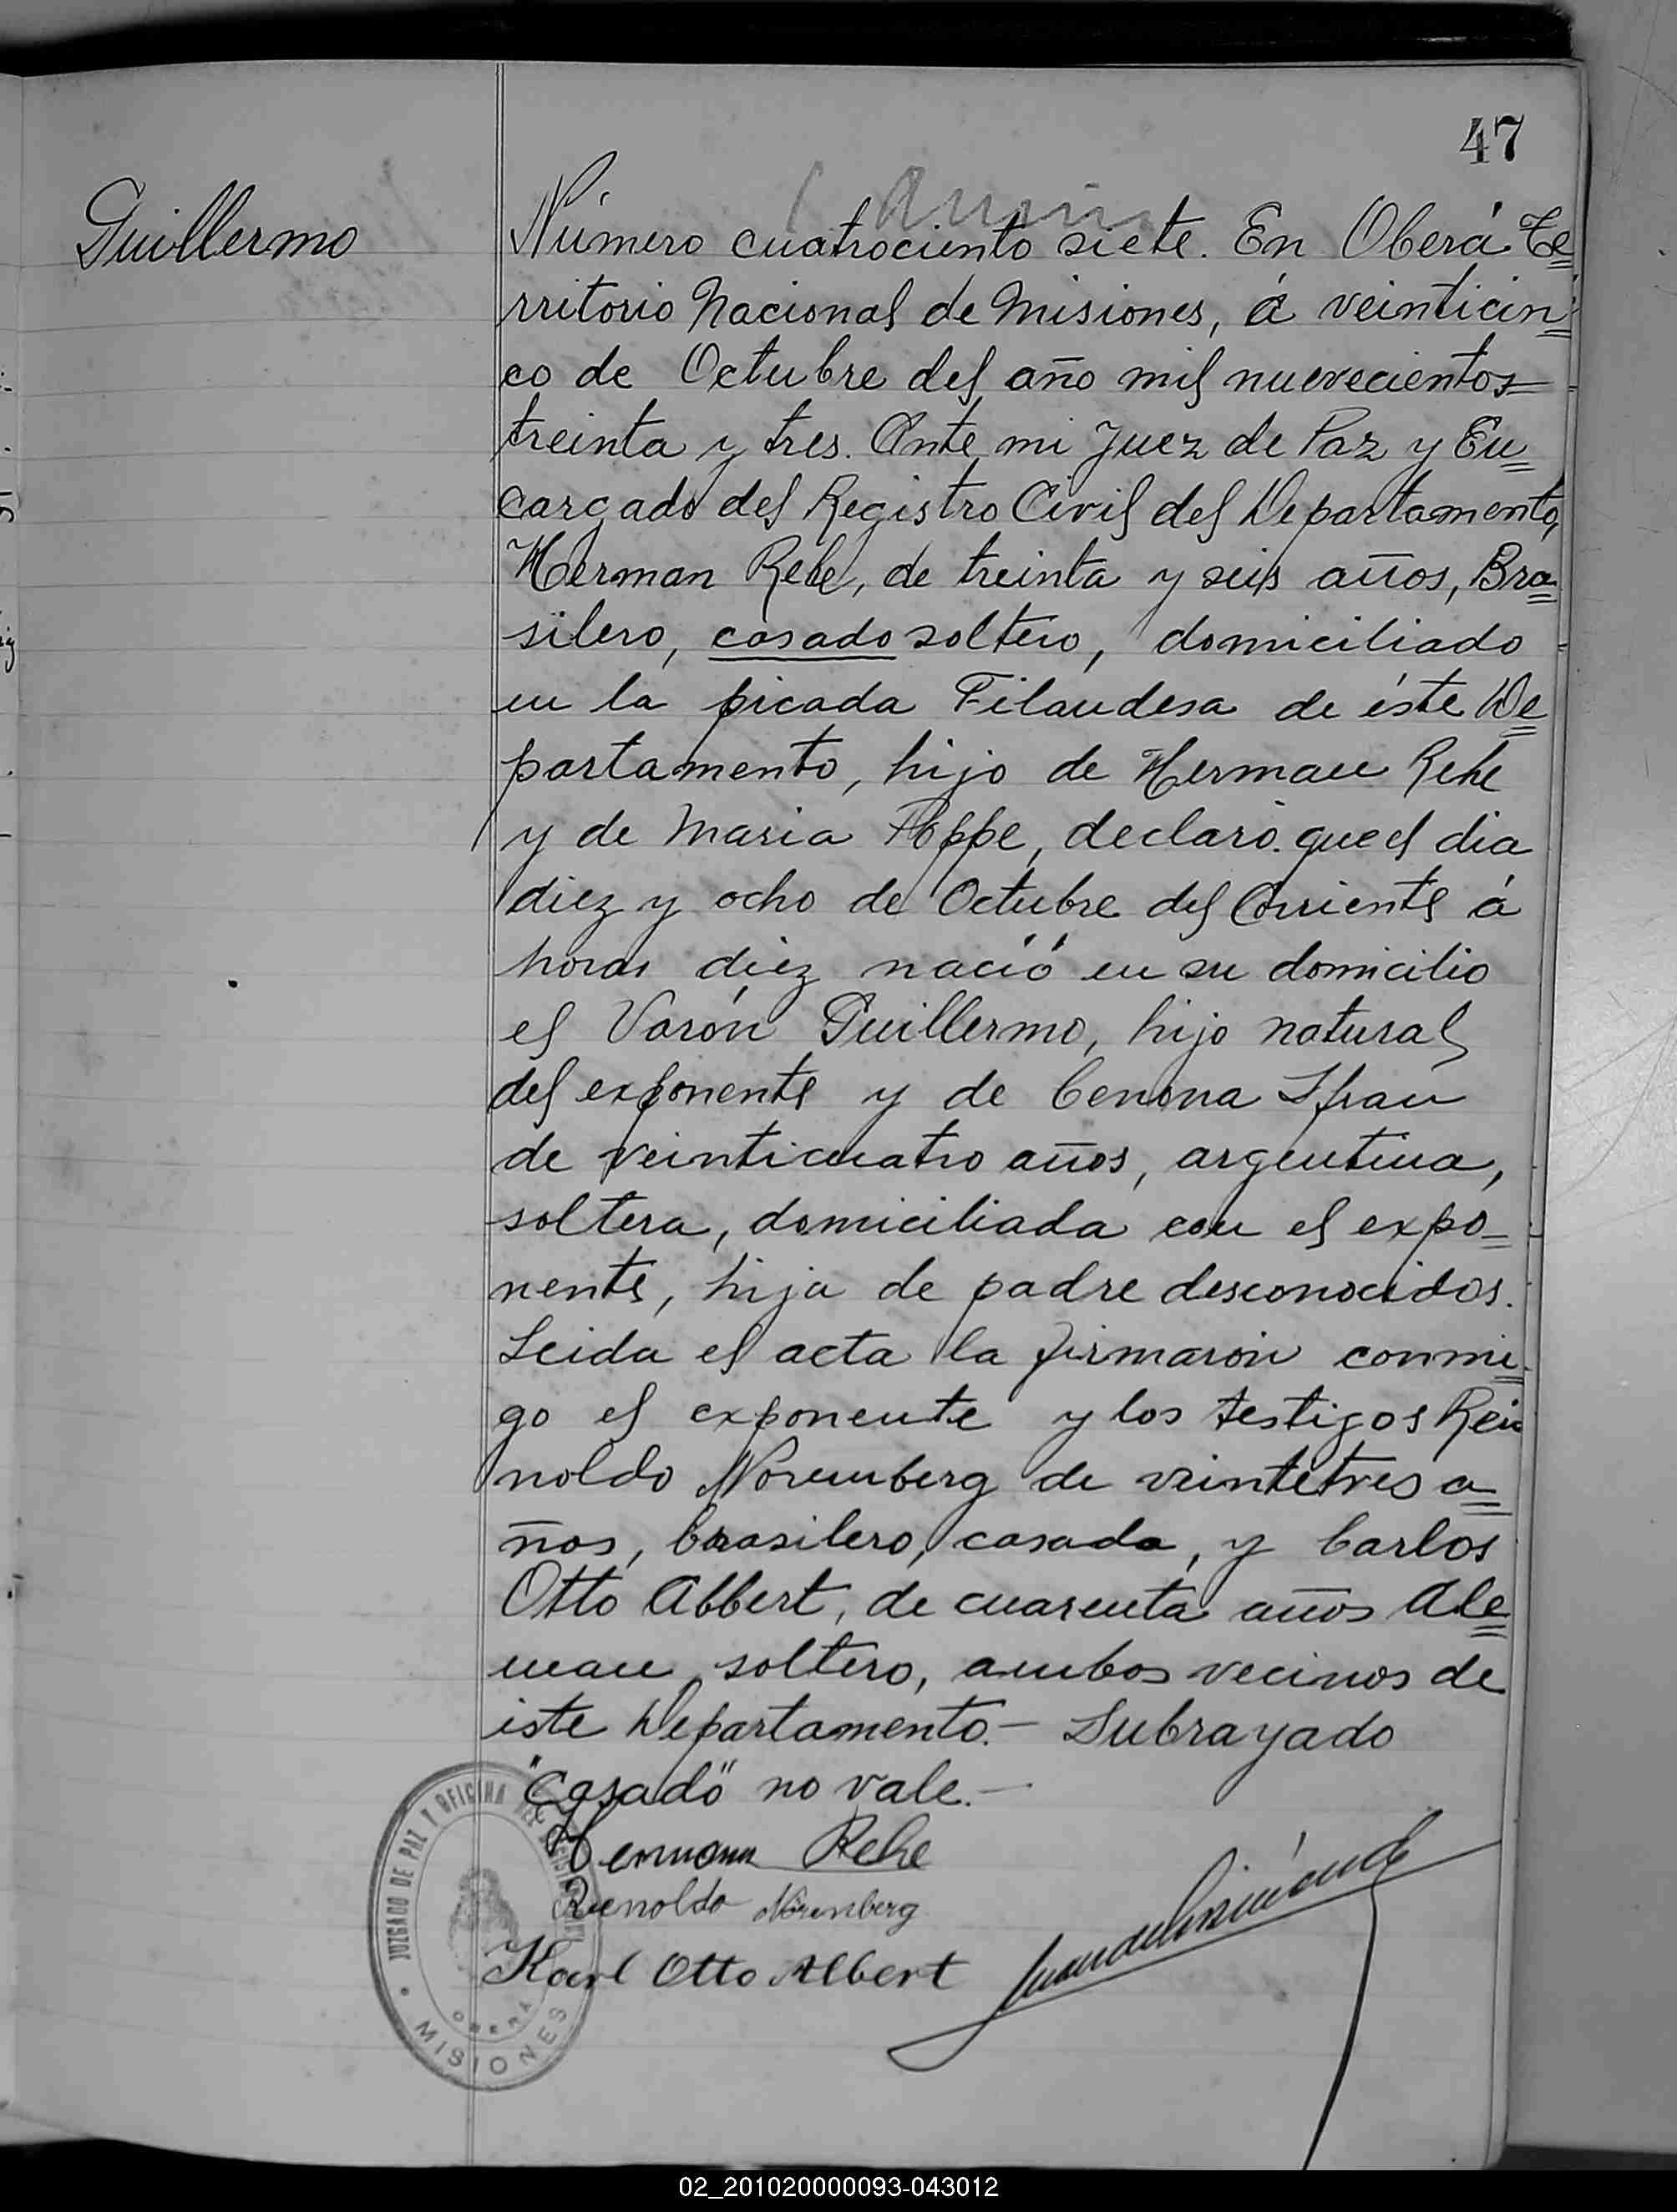 47
Guillermo
Número cuatrociento siete. En Oberá Te=
rritorio Nacional de Misiones, á veinticin=
co de Octubre del año mil nuevecientos=
treinta y tres. Ante mi Juez de Paz y En=
cargado del Registro Civil del Departamento,
Herman Rehe, de treinta y seis años, Bra=
silero, casado soltero, domiciliado
en la picada Filandesa de éste De=
partamento, hijo de Herman Rehe
y de Maria Poppe, declaró que el dia
diez y ocho de Octubre del Corriente á
horas diez nació en su domicilio
el Varón Guillermo, hijo natural
del exponente y de Cenona Ifran
de veinticuatro años, argentina,
soltera, domiciliada con el expo=
nente, hija de padre desconocidos.
Leida el acta la firmaron conmi=
go el exponente y los testigos Rei
noldo Norenberg de veintetres a=
ños, brasilero, casado, y Carlos
Otto Albert, de cuarenta años Ale=
man, soltero, ambos vecinos de
este Departamento.- Subrayado
"Casado" no vale.-
Hermann Rehe
Reinoldo Nörenberg
Karl Otto Albert
JUZGADO DE PAZ Y OFICINA DEL
OBERÁ
MISIONES
02_201020000093-043012